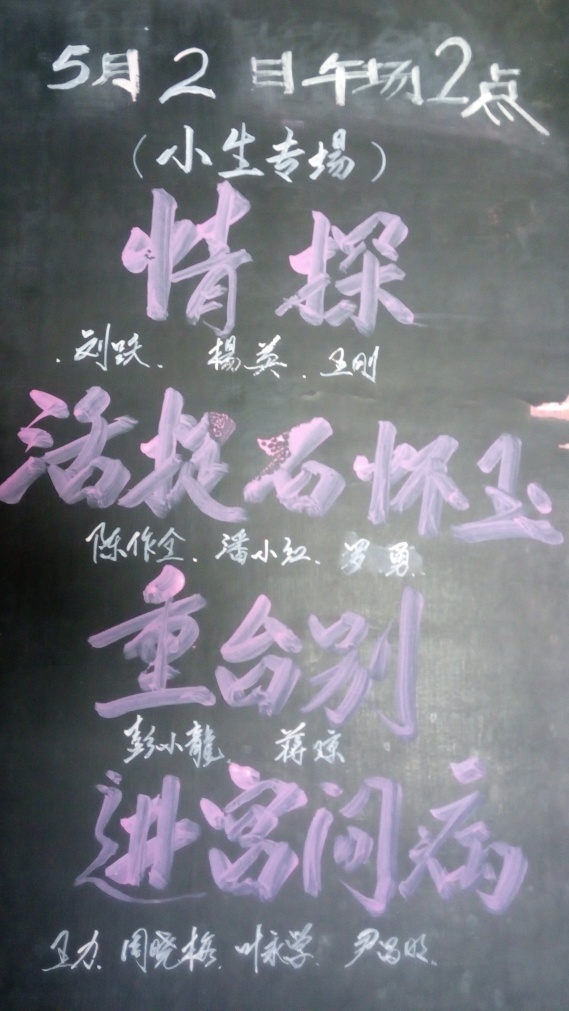 5月2日午场2点
（小生专場）
情探
刘跌、楊英、王刚
活捉石怀玉
陈作全、潘小红、罗勇
重台别
彭小龍 蒋琼
进宫问病
王力、周晓梅、叶永学、尹昌明